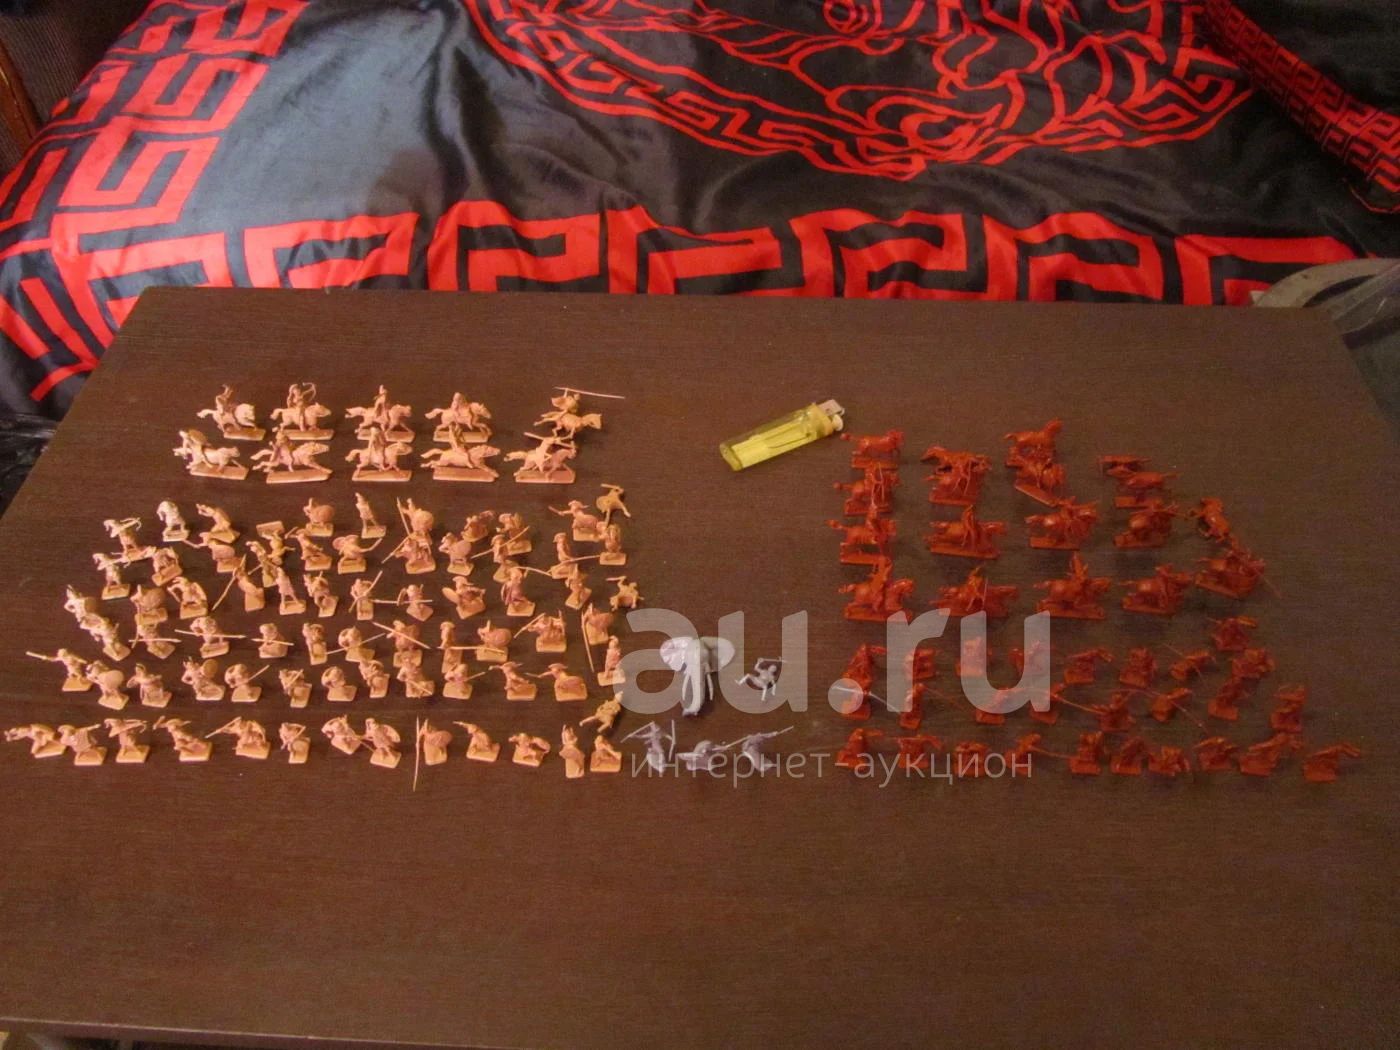 au.ru
интернет-аукцион